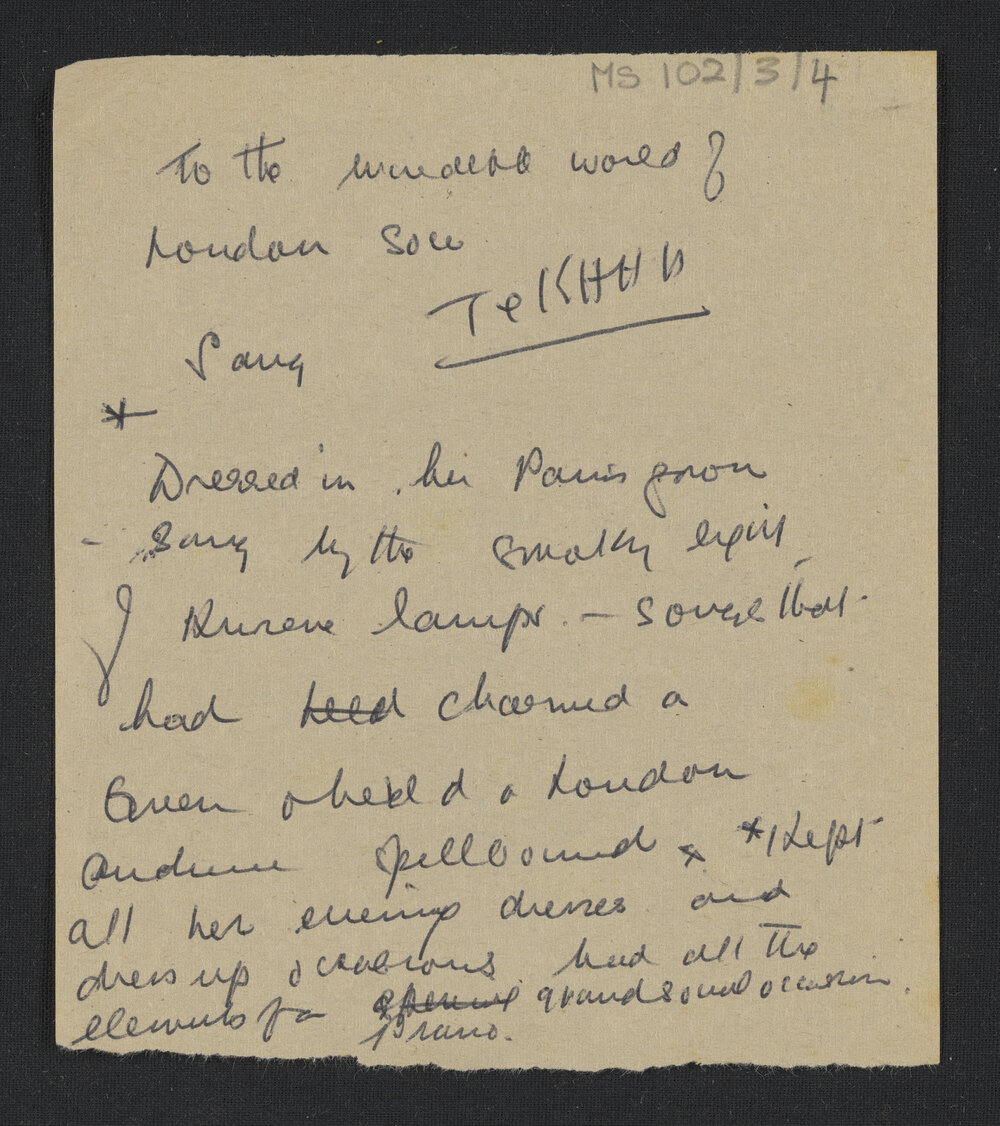 MS 102/3/4
To the incredible world of
London
TekHHH
Sang
*
Dressed in her Paris gown
- Sang by the smokey light
of Kerosene lamps - songs that
had held charmed a
Queen & held a London
audience spellbound x *Kept
all her evening dresses and
dress up occasions had all the
elements for opening grand social occasion.
piano.